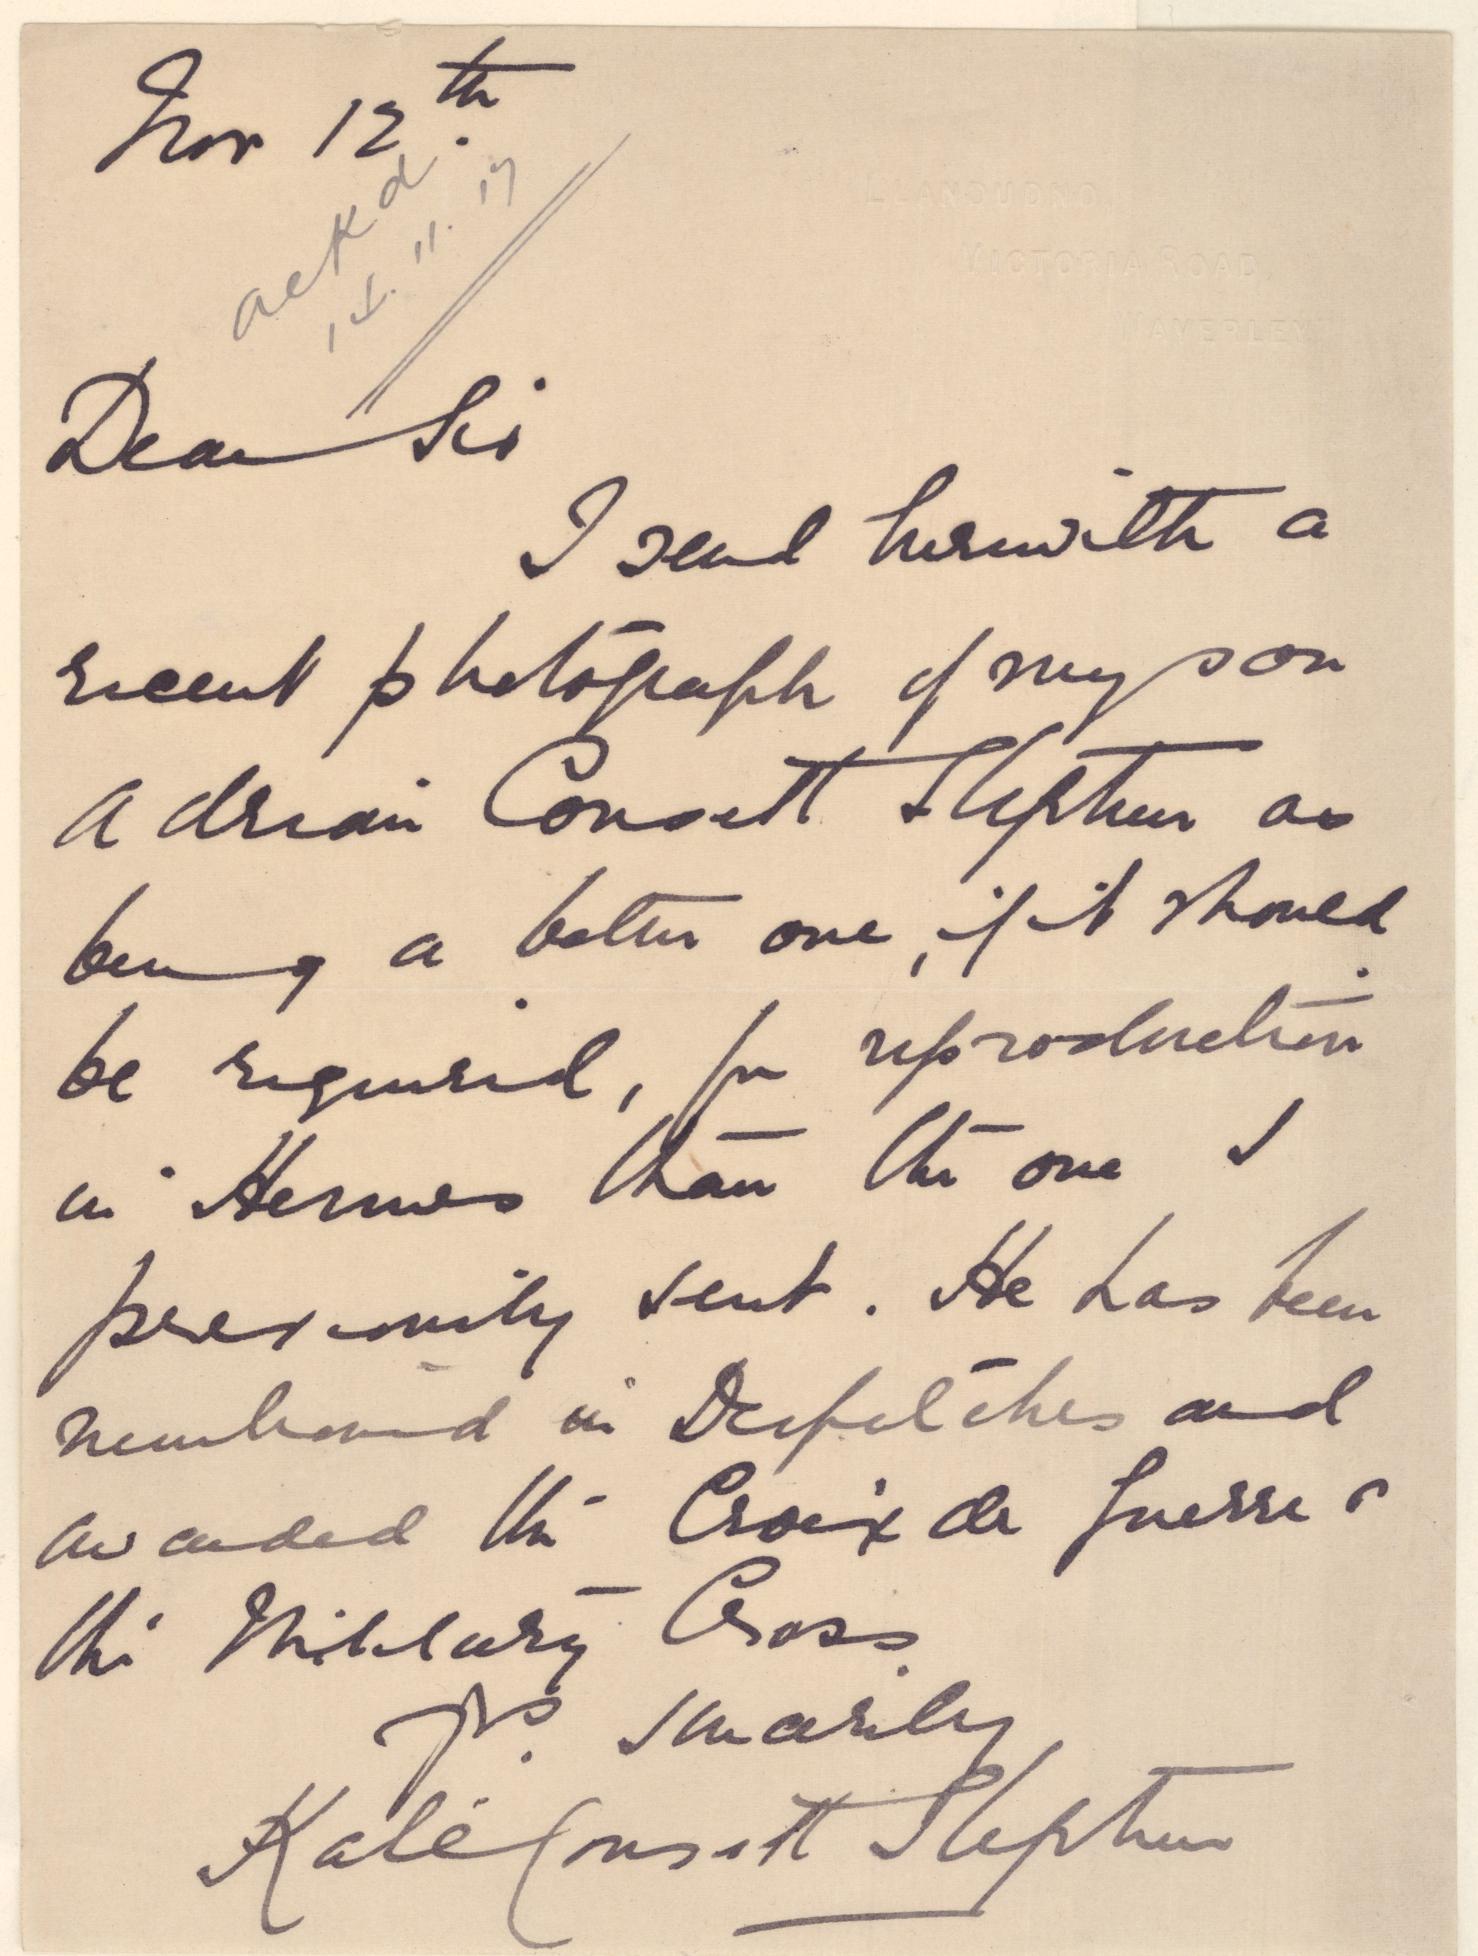 Nov 12th.
ackd
15.11.17
LLANDUDNO,
VICTORIA ROAD,
WAVERLEY
Dear Sir
I send herewith a
recent photograph of my son
Adrian Consett Stephen as
being a better one, if it should
be required, for reproduction
in Hermes than the one I
previously sent. He has been
mentioned in Despatches and
awarded the Croix de Guerre &
the Military Cross.
Yrs. sincerely
Kate Consett Stephen